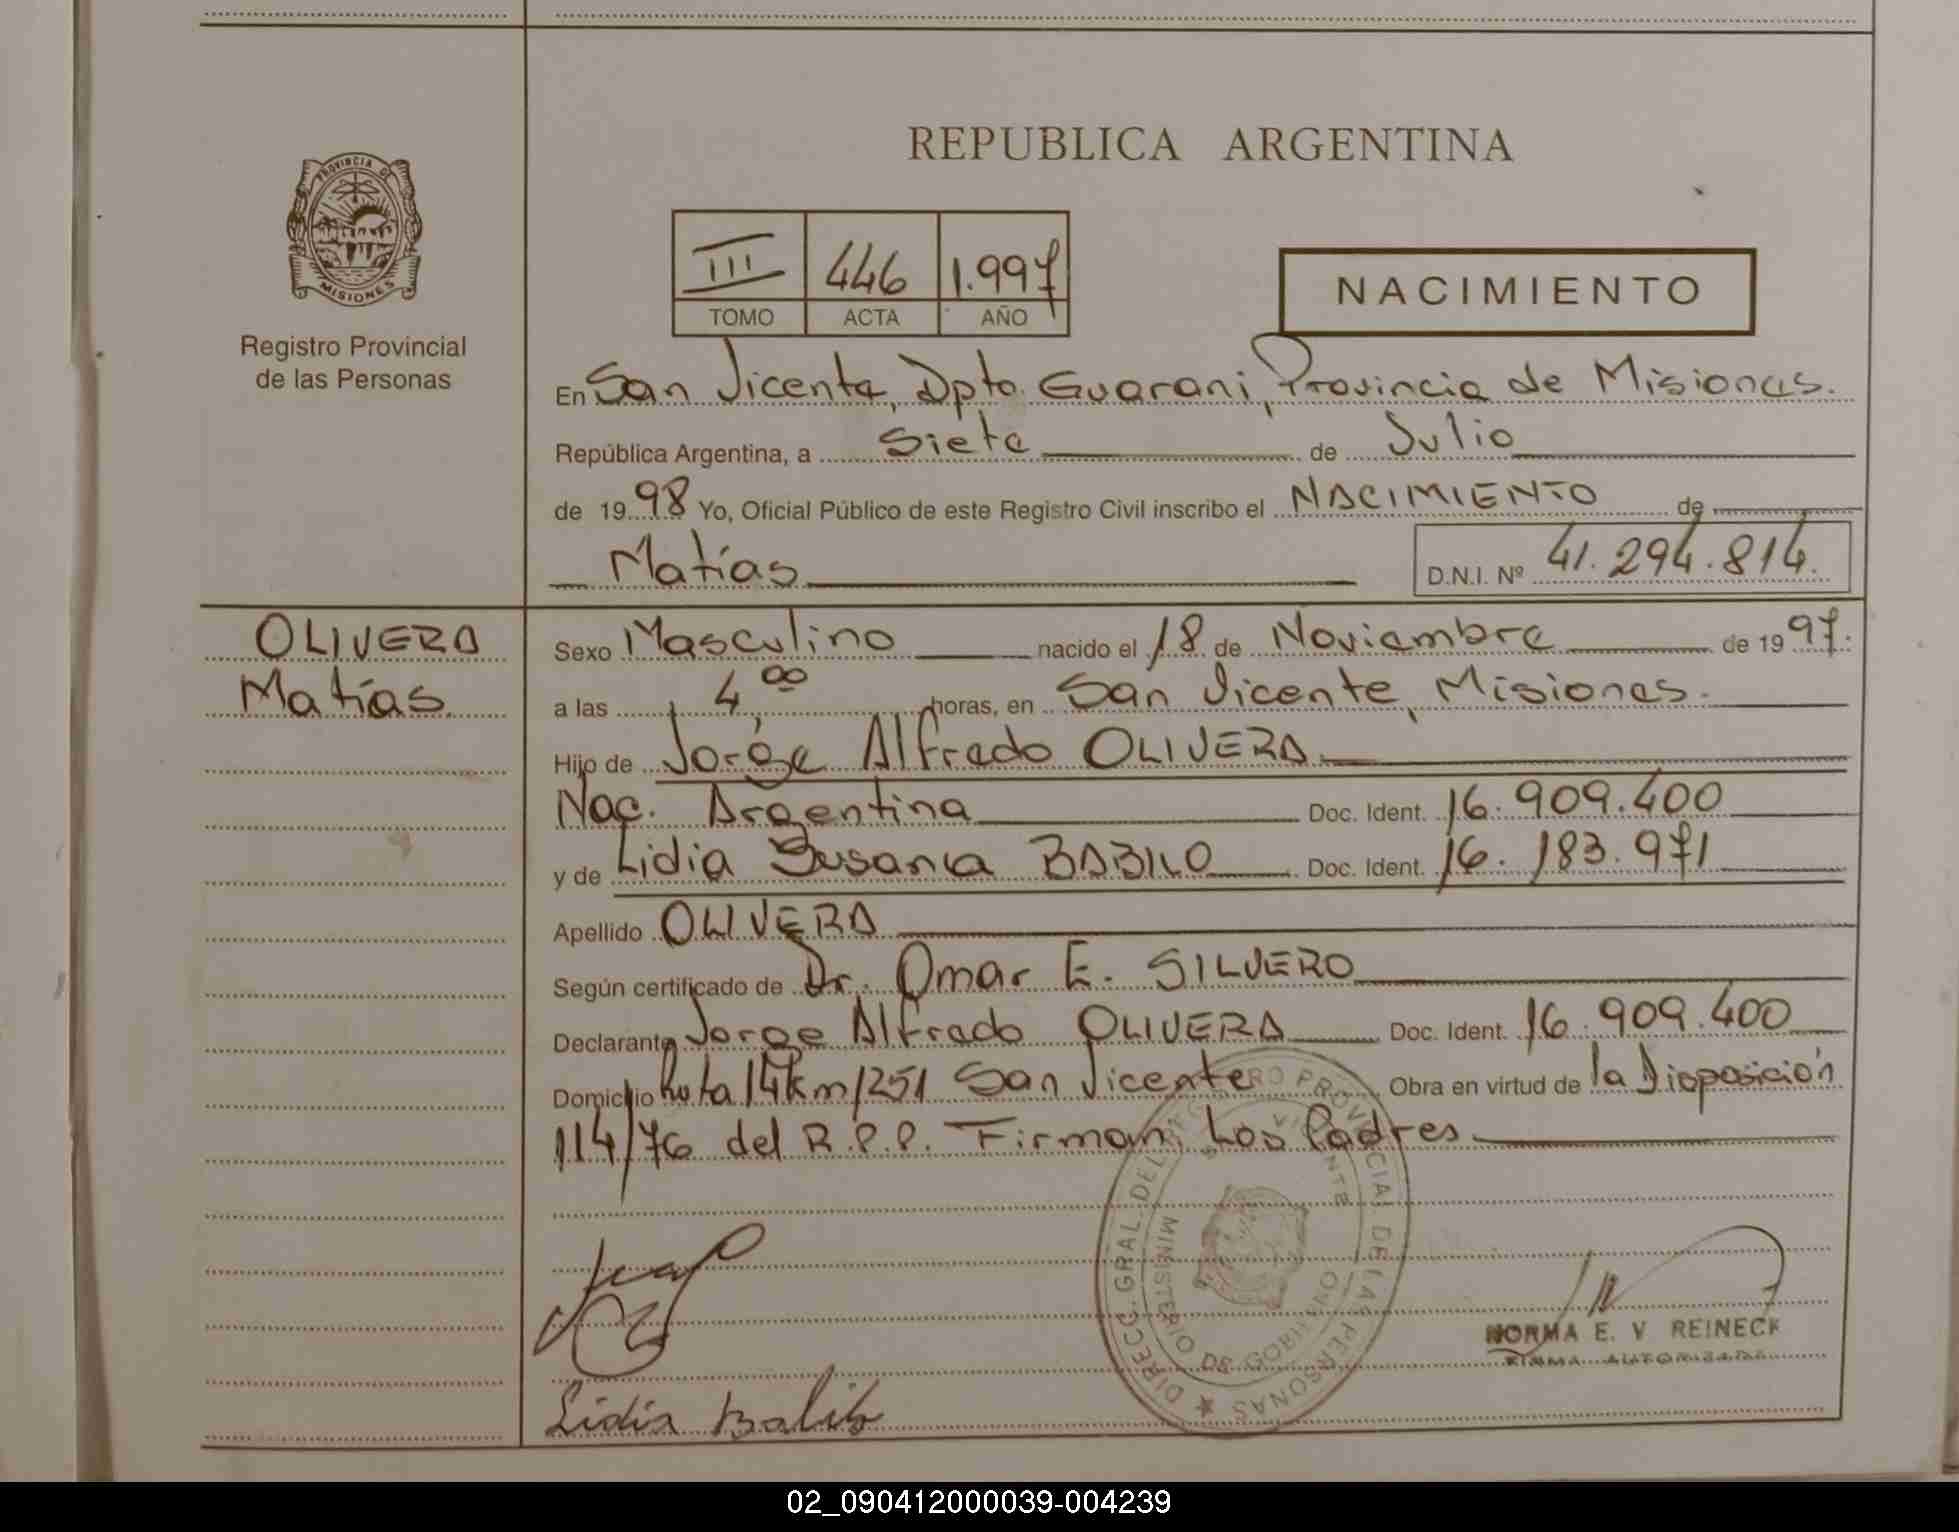 REPUBLICA ARGENTINA
PROVINCIA DE
MISIONES
Registro Provincial
de las Personas
III 446 1.997
TOMO ACTA AÑO
NACIMIENTO
En San Vicente, Dpto. Guarani, Provincia de Misiones.
República Argentina, a Siete de Julio
de 1998 Yo, Oficial Público de este Registro Civil inscribo el NACIMIENTO de
Matías D.N.I. Nº 41.294.814.
OLIVERA
Matías
Sexo Masculino nacido el 18 de Noviembre de 1997.
a las 4,00 horas, en San Vicente, Misiones.
Hijo de Jorge Alfredo OLIVERA
Nac. Argentina Doc. Ident. 16.909.400
y de Lidia Susana Doc. Ident. 16.183.971
Apellido OLIVERA
Según certificado de Dr. Omar E. SILVERO
Declarante Jorge Alfredo OLIVERA Doc. Ident. 16.909.400
Domicilio Ruta 14 km 1251 San Vicente Obra en virtud de la Disposición
114/76 del R.P.P. Firman Los Padres
DIRECC. GRAL. DEL REGISTRO PROVINCIAL DE LAS PERSONAS
MINISTERIO DE GOBIERNO
SAN VICENTE
NORMA E. V. REINECK
FIRMA AUTORIZADA
Lidia
02_090412000039-004239